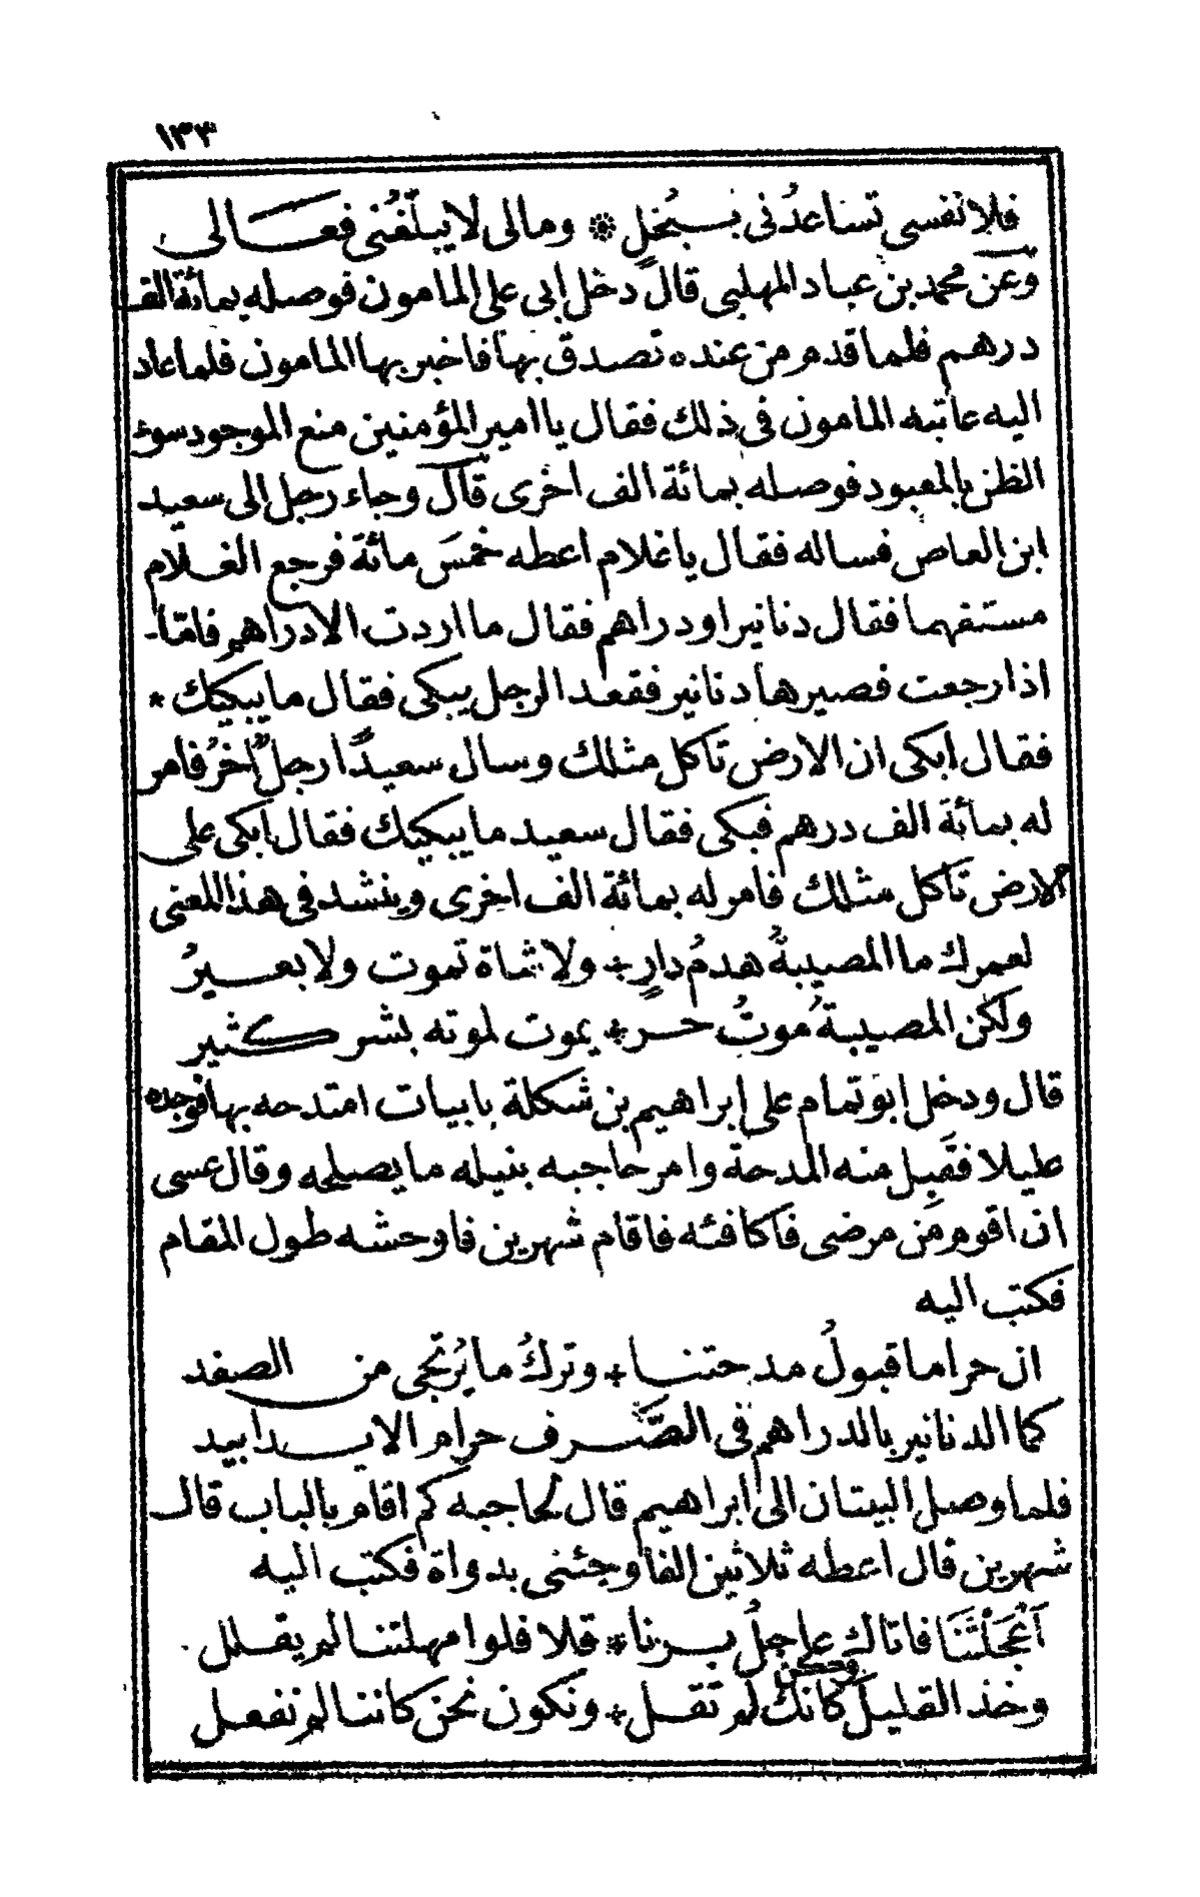 ١٣٣
فلا نفسى تساعدُنى ببُخلٍ * ومالى لا يبلّغُنى فعالى
وعن محمد بن عباد المهلبى قال دخل ابى على المامون فوصله بمائة الف
درهم فلما قدم من عنده تصدق بها فاخبر بها المامون فلما عاد
اليه عاتبه المامون فى ذلك فقال يا امير المؤمنين منع الموجود سوء
الظن بالمعبود فوصله بمائة الف اخرى قال وجاء رجل الى سعيد
ابن العاص فساله فقال يا غلام اعطه خمسَ مائة فرجع الغلام
مستفهما فقال دنانير او دراهم فقال ما اردت الا دراهم فامّا
اذا رجعت فصيرها دنانير فقعد الرجل يبكى فقال ما يبكيك *
فقال ابكى ان الارض تاكل مثلك وسال سعيدًا رجلٌ اخرُ فامر
له بمائة الف درهم فبكى فقال سعيد ما يبكيك فقال ابكى على
الارض تاكل مثلك فامر له بمائة الف اخرى وينشد فى هذا المعنى
لعمرك ما المصيبةُ هدمُ دارٍ * ولا شاة تموت ولا بعيرُ
ولكن المصيبةُ موتُ حر * يموت لموته بشر كثير
قال ودخل ابو تمام على ابراهيم بن شكلة بابيات امتدحه بها فوجده
عليلا فقَبِل منه المدحة وامر حاجبه بنيله ما يصلحه وقال عسى
ان اقوم من مرضى فاكافئه فاقام شهرين فاوحشه طول المقام
فكتب اليه
ان حراما قبولُ مدحتنا * وتركُ ما يُرتجى من الصفد
كما الدنانير بالدراهم فى الصَّرف حرام الا يدا بيد
فلما وصل البيتان الى ابراهيم قال لحاجبه كم اقام بالباب قال
شهرين قال اعطه ثلاثين الفا وجئنى بدواة فكتب اليه
اَعْجَلْتَنَا فاتاك عاجلُ برنا * قلا فلو امهلتنا لم يقلل
وخذ القليل وكن كانك لم تقل * ونكون نحن كاننا لم نفعل